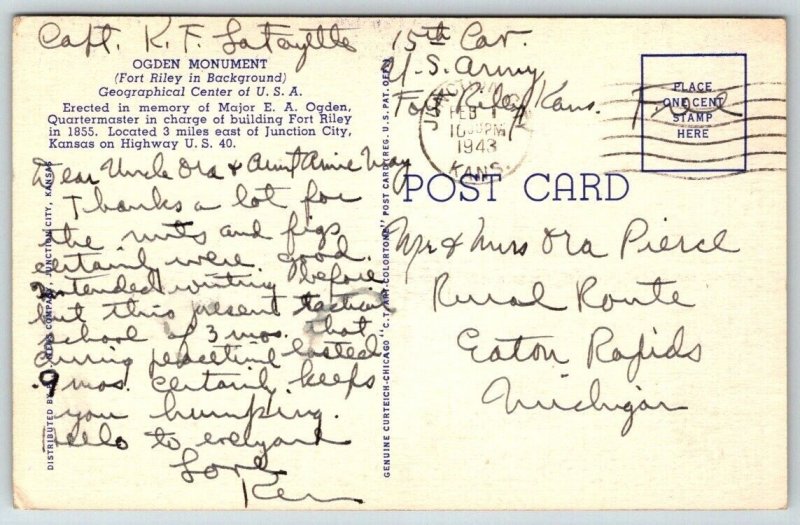 Capt. K. F. LaFayette
15th Cav.
U.S. Army
Fort Riley Kans.
Free
OGDEN MONUMENT
(Fort Riley in Background)
Geographical Center of U. S. A.
Erected in memory of Major E. A. Ogden,
Quartermaster in charge of building Fort Riley
in 1855. Located 3 miles east of Junction City,
Kansas on Highway U. S. 40.
Dear Uncle Ora & Aunt Anne May
Thanks a lot for
the nuts and figs
certainly were good.
Intended writing before
but this present tactical
school of 3 mos. that
during peacetime lasted
9 mos. certainly keeps
you humping.
Hello to everyone
Love
Ken
DISTRIBUTED BY NEWS COMPANY, JUNCTION CITY, KANSAS
GENUINE CURTEICH-CHICAGO "C. T. ART-COLORTONE" POST CARD (REG. U. S. PAT. OFF.)
FEB 1
PM
1943
KANS.
PLACE
ONE CENT
STAMP
HERE
POST CARD
Mr & Mrs Ora Pierce
Rural Route
Eaton Rapids
Michigan